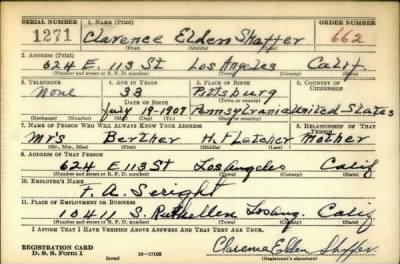 SERIAL NUMBER 1. NAME (Print) ORDER NUMBER
1271 Clarence Elden Shaffer 662
(First) (Middle) (Last)
2. ADDRESS (Print)
624 E. 113 St Los Angeles Calif.
(Number and street or R. F. D. number) (Town) (County) (State)
3. TELEPHONE 4. AGE IN YEARS 5. PLACE OF BIRTH 6. COUNTRY OF CITIZENSHIP
None 33 Pittsburg
DATE OF BIRTH (Town or county)
July 19 1907 Pennsylvania United States
(Exchange) (Number) (Mo.) (Day) (Yr.) (State or country)
7. NAME OF PERSON WHO WILL ALWAYS KNOW YOUR ADDRESS 8. RELATIONSHIP OF THAT PERSON
Mrs Berther H. Fletcher Mother
(Mr., Mrs., Miss) (First) (Middle) (Last)
9. ADDRESS OF THAT PERSON
624 E 113 St Los Angeles Calif
(Number and street or R. F. D. number) (Town) (County) (State)
10. EMPLOYER'S NAME
F. A. Seright
11. PLACE OF EMPLOYMENT OR BUSINESS
10411 S. Ruthellen Los Ang. Calif
(Number and street or R. F. D. number) (Town) (County) (State)
I AFFIRM THAT I HAVE VERIFIED ABOVE ANSWERS AND THAT THEY ARE TRUE.
REGISTRATION CARD
D. S. S. Form 1 (over) 16—17105 Clarence Elden Shaffer
(Registrant's signature)